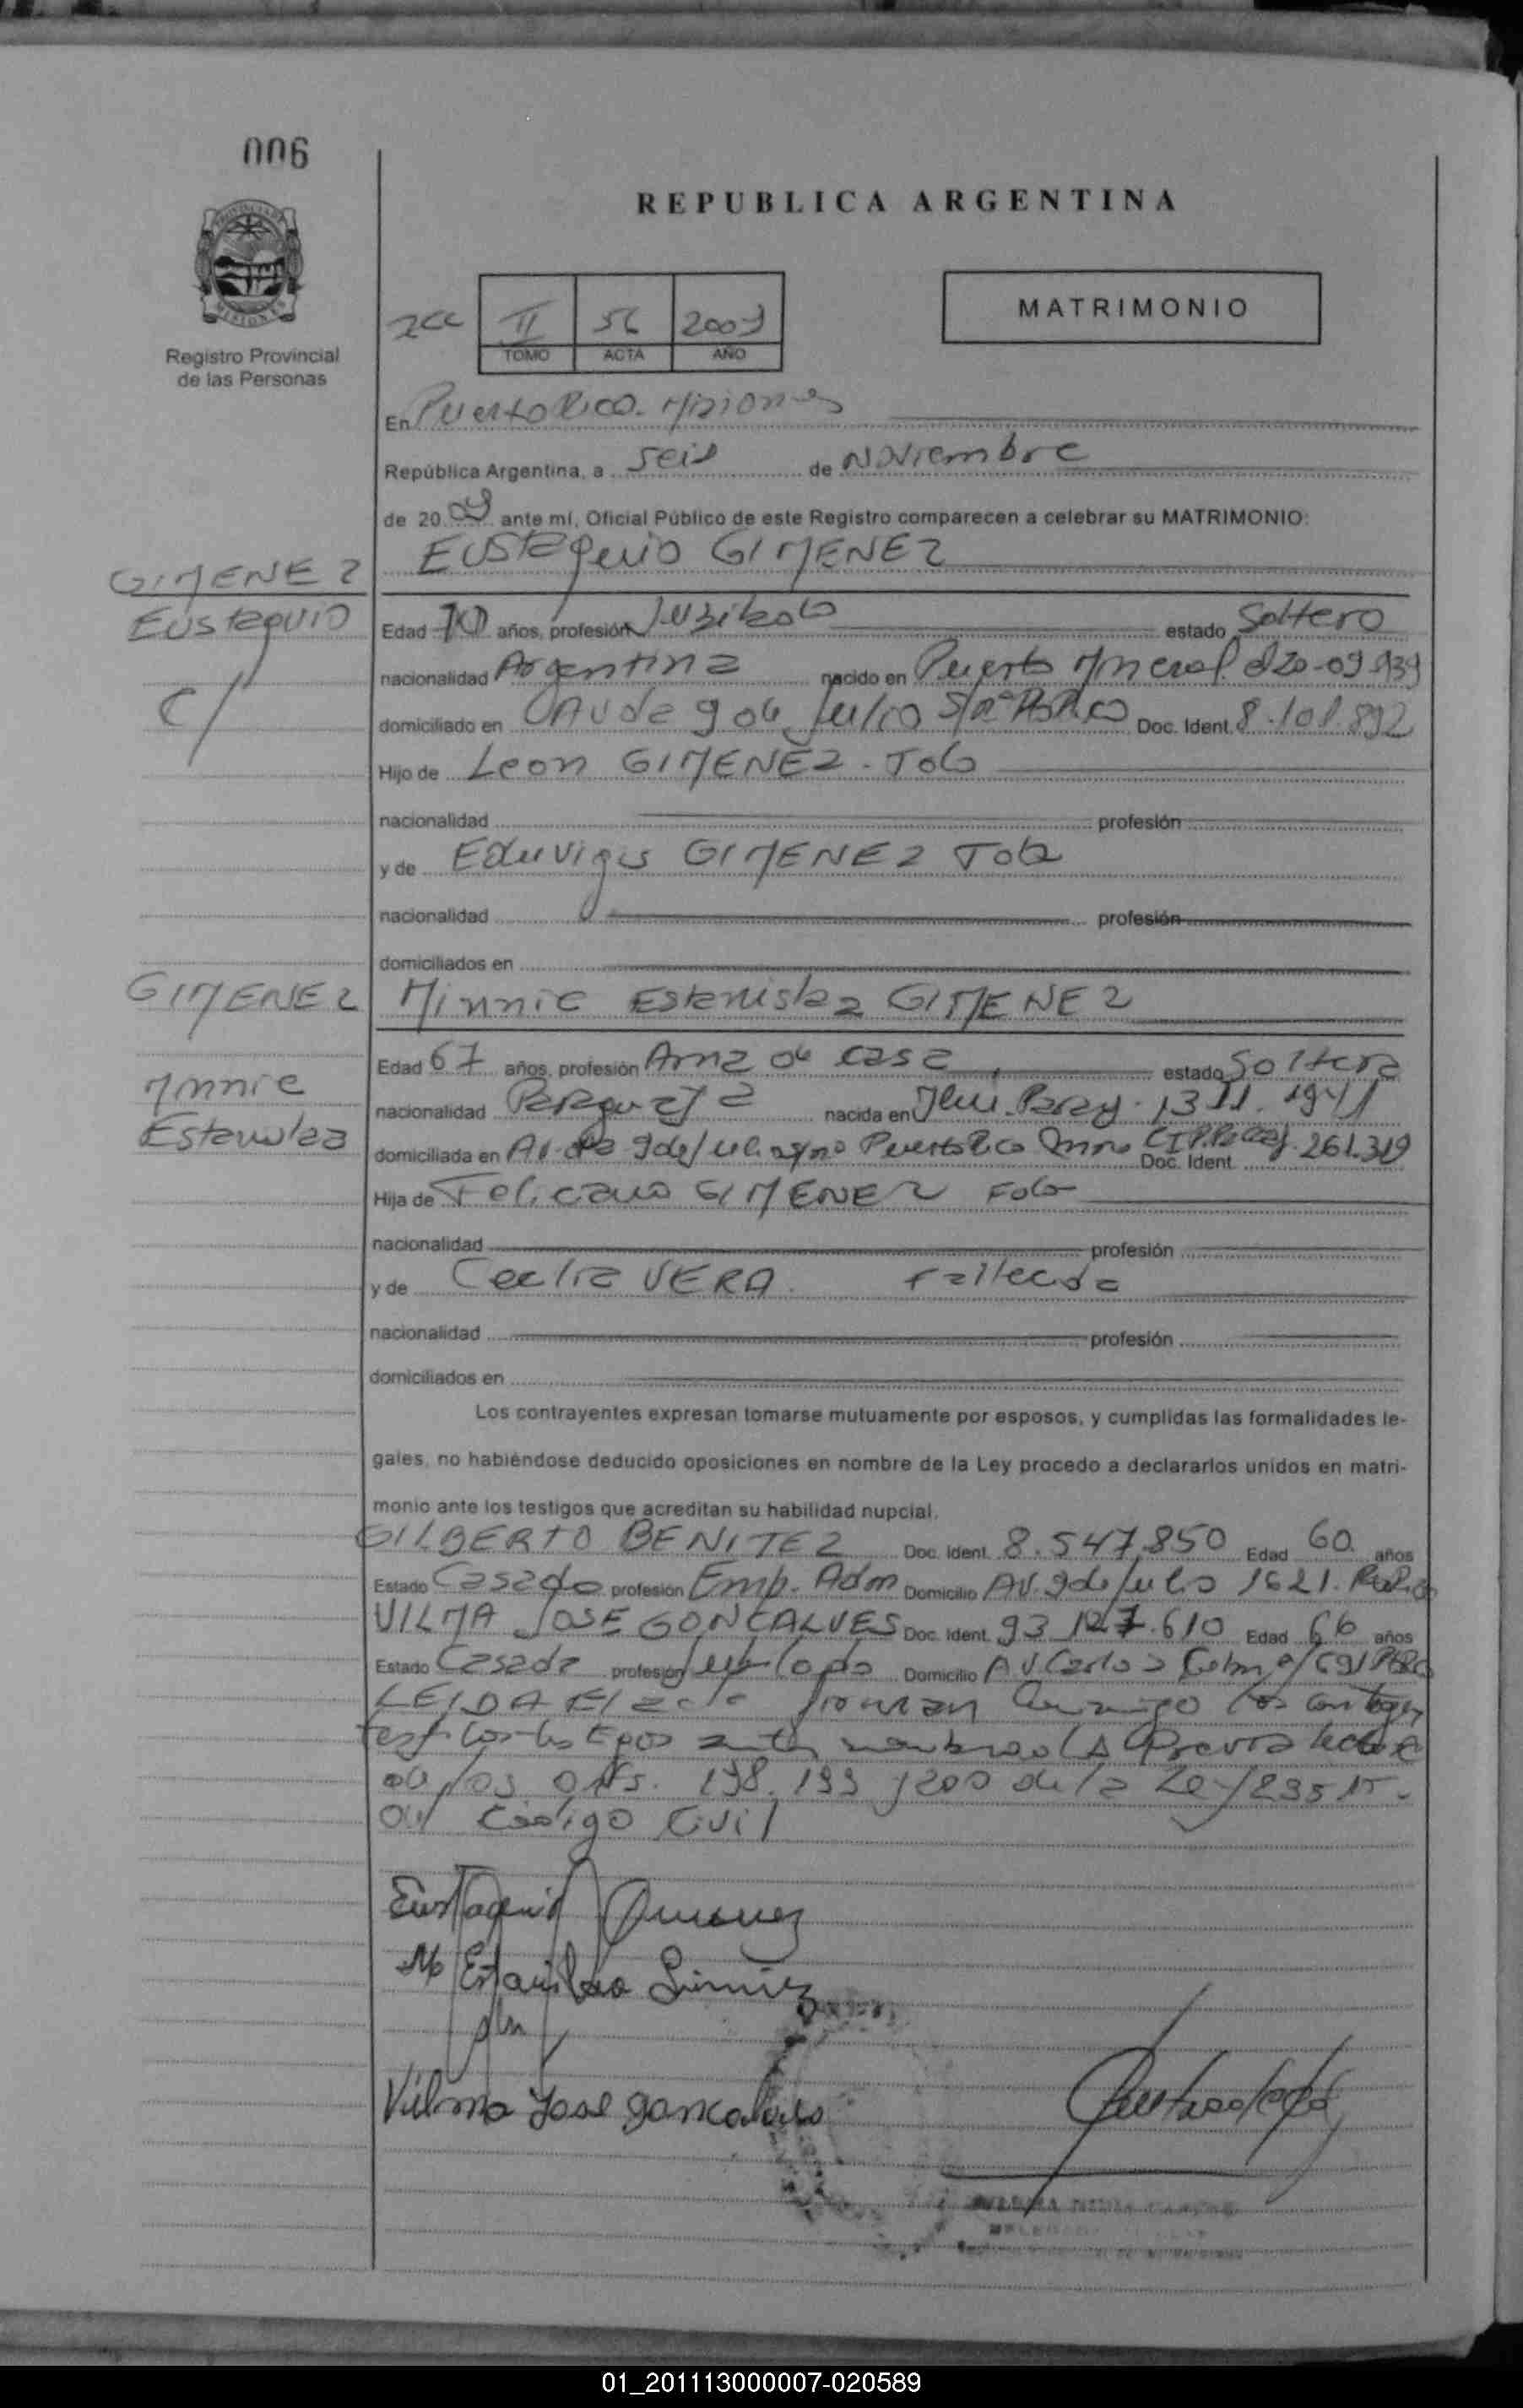 006
REPUBLICA ARGENTINA
PROVINCIA DE
MISIONES
Registro Provincial
de las Personas
II 56 2009
TOMO ACTA AÑO
MATRIMONIO
En Puerto Rico. Misiones
República Argentina, a seis de Noviembre
de 2009 ante mí, Oficial Público de este Registro comparecen a celebrar su MATRIMONIO:
Eustaquio GIMENEZ
GIMENEZ
Eustaquio
C/
Edad 70 años, profesión Jubilado estado Soltero
nacionalidad Argentina nacido en Puerto Mineral el 20-09-939
domiciliado en Avda 9 de Julio S/nº Doc. Ident. 8.101.892
Hijo de Leon GIMENEZ.
nacionalidad profesión
y de Eduvigis GIMENEZ
nacionalidad profesión
domiciliados en
GIMENEZ
Minnie
Estanislaa
Minnie Estanislaa GIMENEZ
Edad 67 años, profesión Ama de casa estado Soltera
nacionalidad Paraguaya nacida en Paray. 13 11. 1941
domiciliada en Av. 9 de Julio Puerto Rico Doc. Ident. 261.319
Hija de Feliciano GIMENEZ
nacionalidad profesión
y de VERA. Fallecida
nacionalidad profesión
domiciliados en
Los contrayentes expresan tomarse mutuamente por esposos, y cumplidas las formalidades le-
gales, no habiéndose deducido oposiciones en nombre de la Ley procedo a declararlos unidos en matri-
monio ante los testigos que acreditan su habilidad nupcial.
GILBERTO BENITEZ Doc. Ident. 8.547.850 Edad 60 años
Estado Casado profesión Emp. Adm Domicilio AV. 9 de Julio 1621.
VILMA JOSE GONCALVES Doc. Ident. 93.127.610 Edad 66 años
Estado Casada profesión Domicilio AV. Carlos
LEIDA El acta firman conmigo los
testigos antes nombrados Previa lectura
de los arts. 198. 199 y 200 de la Ley
del Código Civil
Eustaquio Gimenez
M Estanislaa Gimenez
Vilma Jose Goncalves
01_201113000007-020589